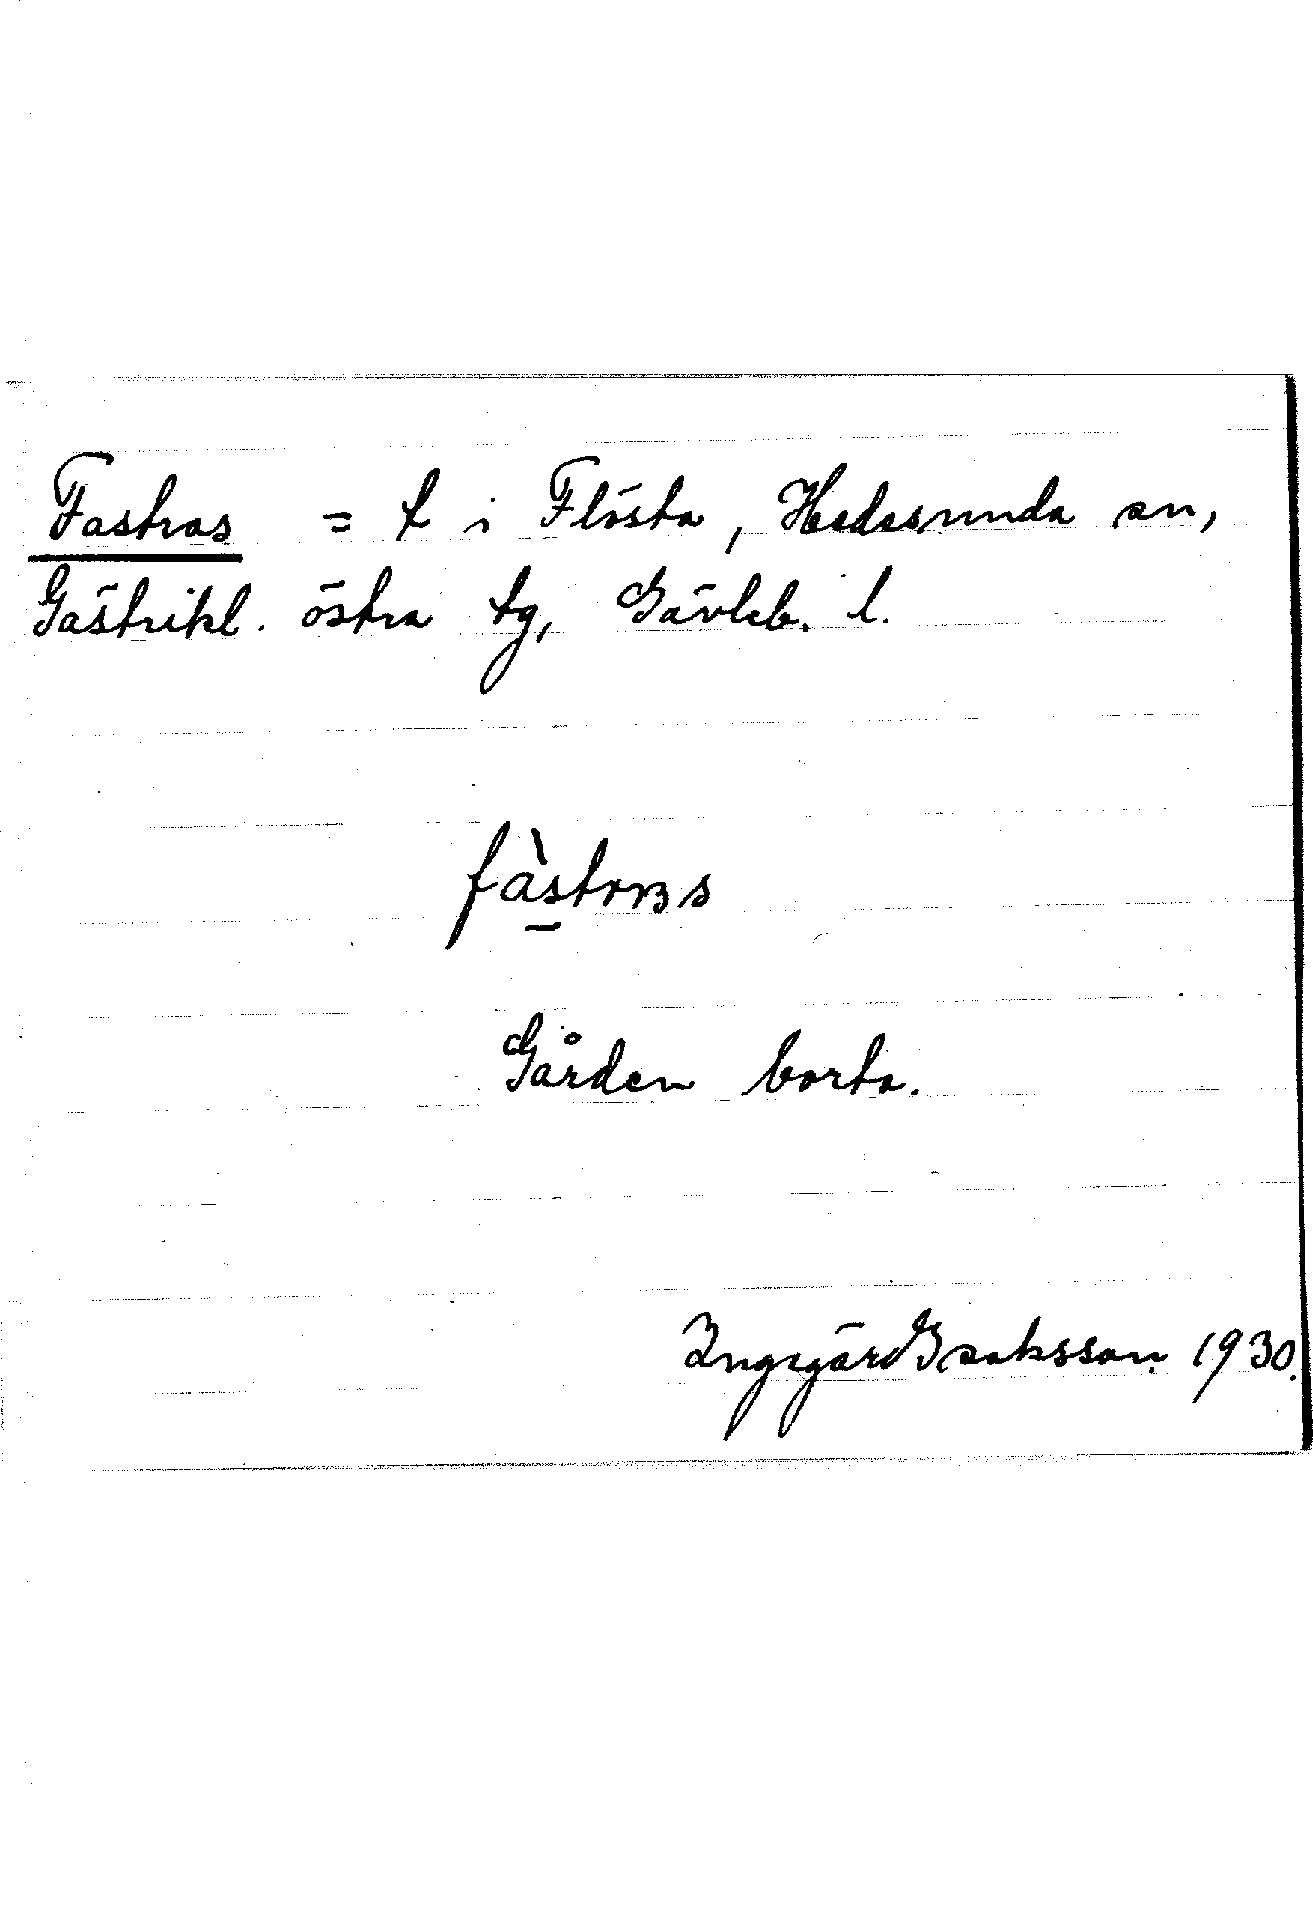 Fastras = t i Flästa, Hedesunda sn,
Gästrikl. östra tg, Gävleb. l.
Gården borta.
Ingegärd Isaksson 1930.